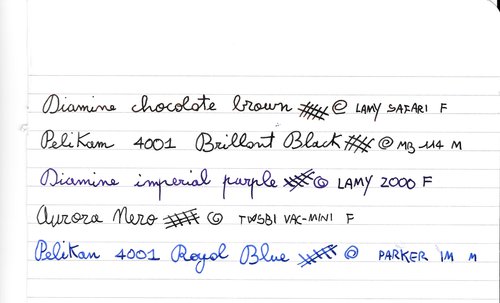 Diamine chocolate brown @ LAMY SAFARI F
Pelikan 4001 Brillant Black @ MB 114 M
Diamine imperial purple @ LAMY 2000 F
Aurora Nero @ TWSBI VAC-MINI F
Pelikan 4001 Royal Blue @ PARKER IM M